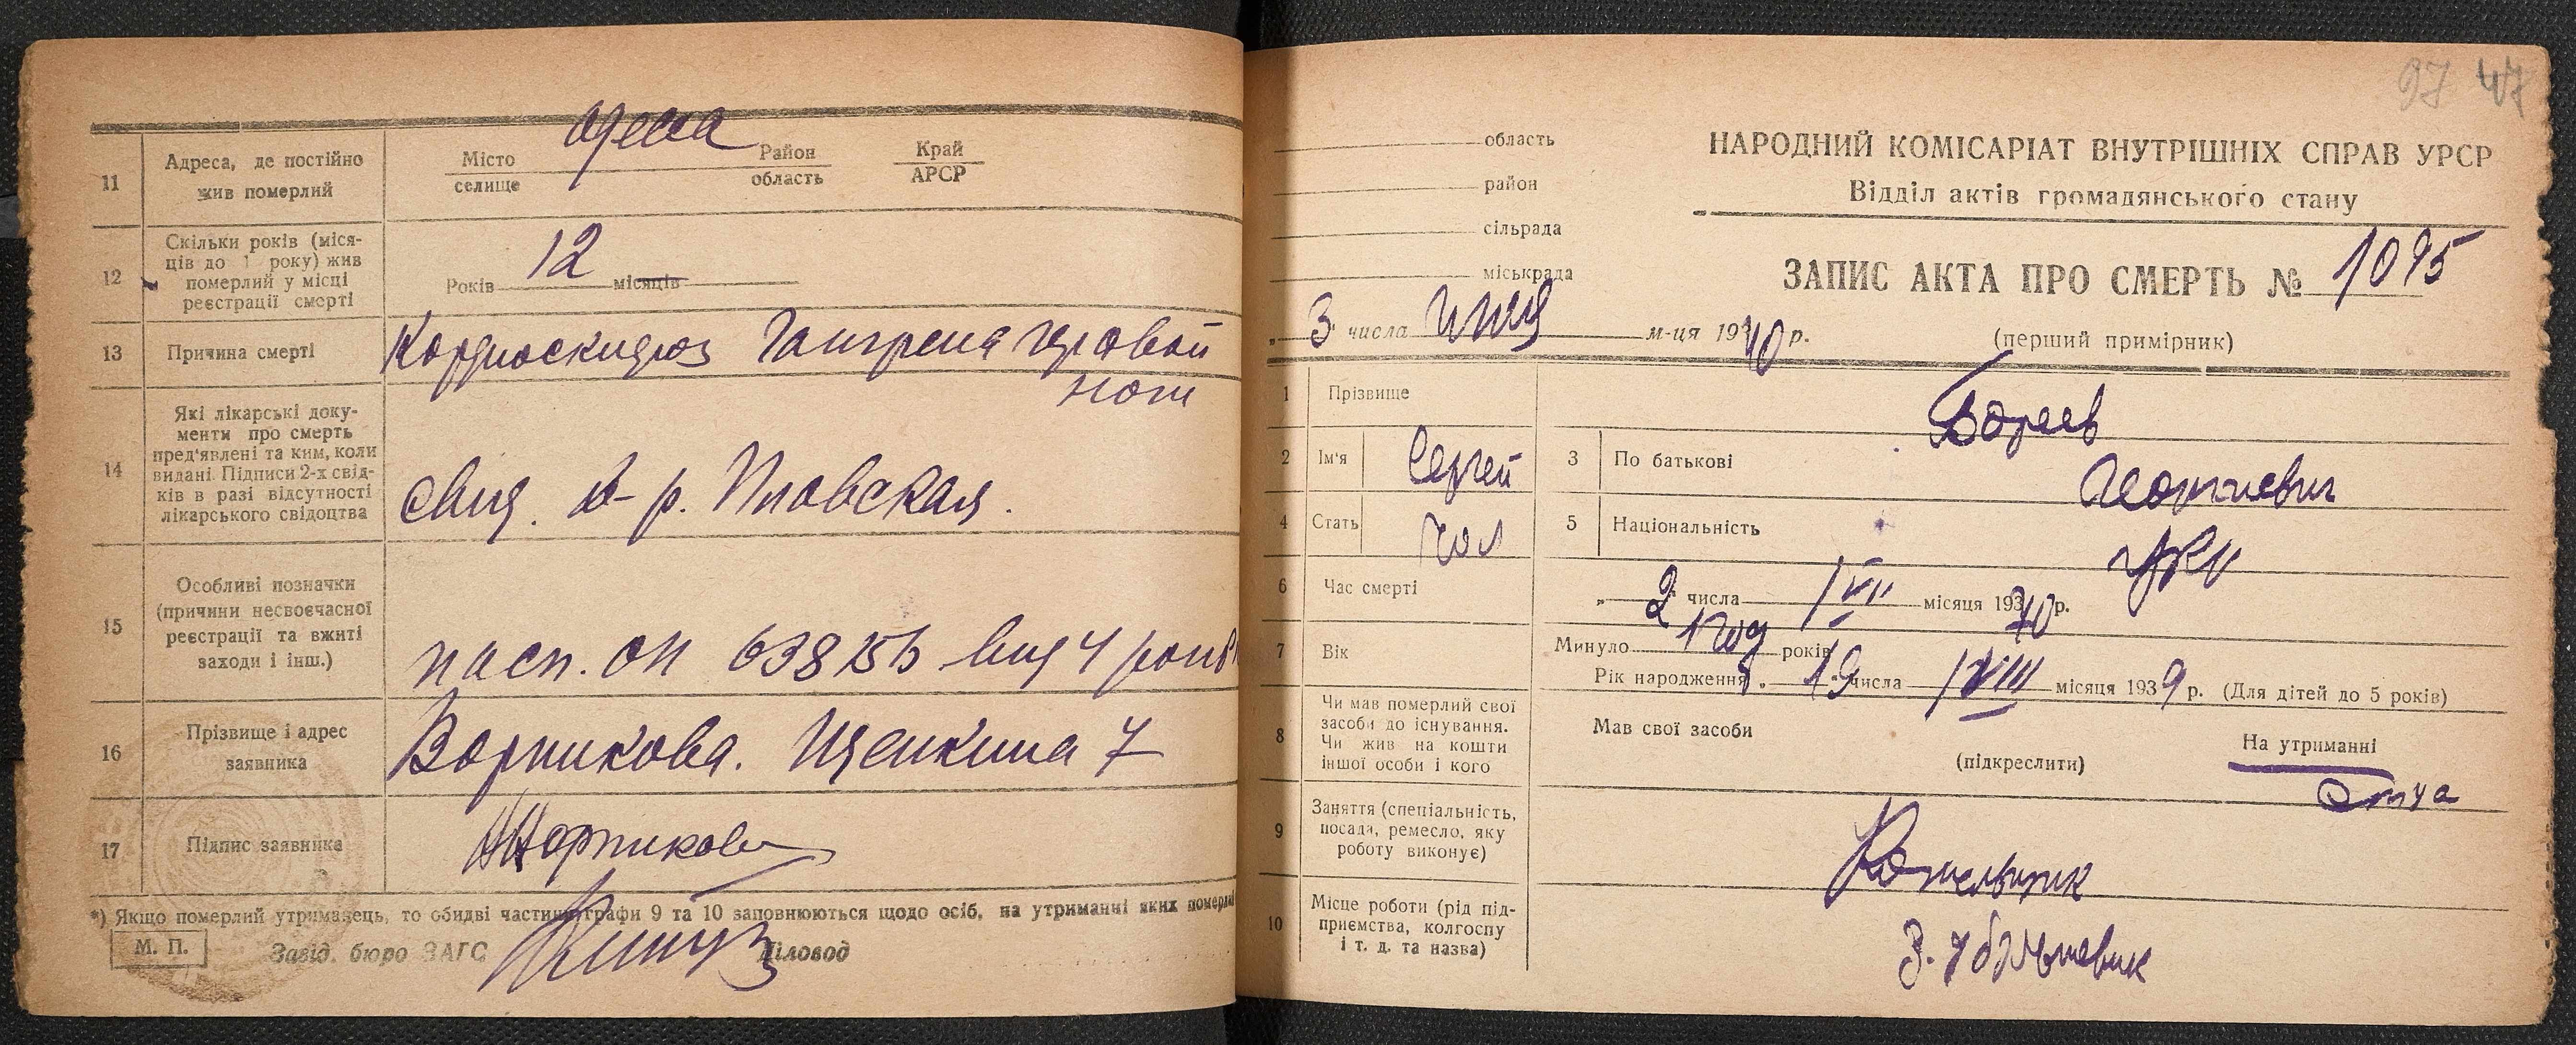 11
Адреса, де постійно
жив померлий
Одеса
Місто
селище
Район
область
Край
АРСР
12
Скільки років (міся-
ців до 1 року) жив
померлий у місці
реєстрації смерті
Років 12 місяців
13
Причина смерті
Гангрена
14
Які лікарські доку-
менти про смерть
пред'явлені та ким, коли
видані. Підписи 2-х свід-
ків в разі відсутності
лікарського свідоцтва
15
Особливі позначки
(причини несвоєчасної
реєстрації та вжиті
заходи і інш.)
пасп. ОП
16
Прізвище і адрес
заявника
Ворникова. Щепкина 7
17
Підпис заявника
*) Якщо померлий утриманець, то обидві частини графи 9 та 10 заповнюються щодо осіб, на утриманні яких
М. П.
Завід. бюро ЗАГС
Діловод
97 47
область
район
сільрада
міськрада
НАРОДНИЙ КОМІСАРІАТ ВНУТРІШНІХ СПРАВ УРСР
Відділ актів громадянського стану
ЗАПИС АКТА ПРО СМЕРТЬ № 1095
(перший примірник)
„ 3 числа м-ця 1940 р.
1
Прізвище
2
Ім'я
Сергей
3
По батькові
Георгиевич
4
Стать
чол
5
Національність
укр
6
Час смерті
„ 2 числа VII місяця 1940 р.
7
Вік
Минуло 1 год років
Рік народження „ 19 числа VIII місяця 1939 р. (Для дітей до 5 років)
8
Чи мав померлий свої
засоби до існування.
Чи жив на кошти
іншої особи і кого
Мав свої засоби
(підкреслити)
На утриманні
отца
9
Заняття (спеціальність,
посада, ремесло, яку
роботу виконує)
Котельник
10
Місце роботи (рід під-
приємства, колгоспу
і т. д. та назва)
большевик